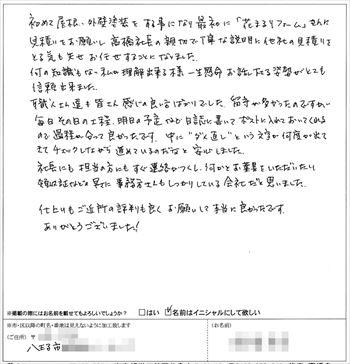 初めて屋根、外壁塗装をする事になり最初に「花まるリフォーム」さんに
見積りをお願いし高橋社長の親切で丁寧な説明に他社の見積りを
とる気も失せお任せすることになりました。
何の知識もない私が理解出来る様一生懸命お話し下さる姿勢がとても
信頼出来ました。
職人さん達も皆さん感じの良い方ばかりでした。留守が多かったのですが
毎日その日の工程、明日の予定など日誌に書いてポストに入れおいてくれる
ので過程が分って良かったです。中に"ダメ直し"という文字が何度か出てきて
チェックしながら進めているのだなと安心しました。
社長にも担当の方にもすぐ連絡がつくし、何かとお葉書をいただいたり
領収証なども早くて事務員さんもしっかりしている会社だと思いました。
仕上りもご近所の評判も良くお願いして本当に良かったです。
ありがとうございました!
※掲載の際にはお名前を載せてもよろしいでしょうか?
□はい
☑名前はイニシャルにして欲しい
※市・区以降の町名・番地は見えないように加工致します
(ご住所) 〒
八王子市
(お名前)